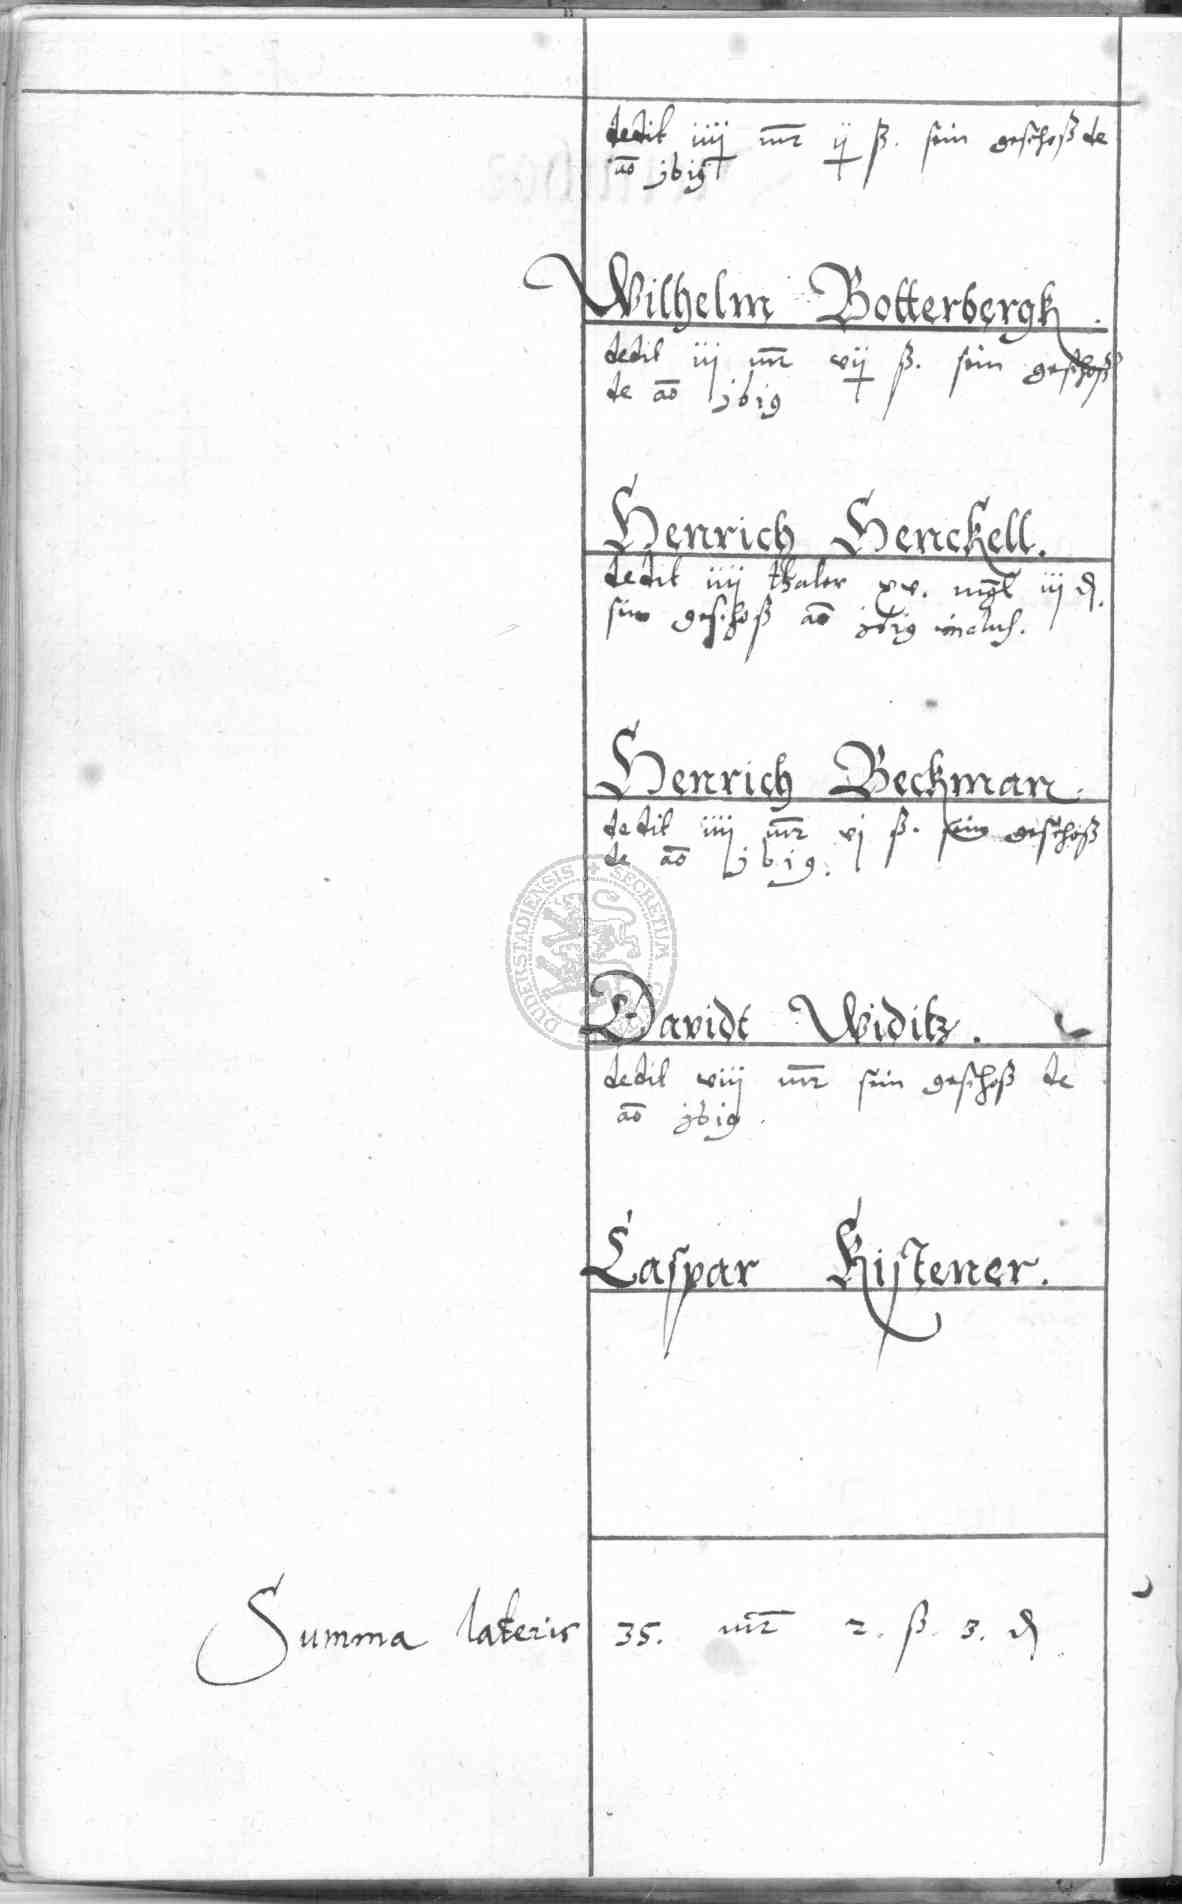 dedit iiij mr ij ß. sein geschoß de
ao j6i9
Wilhelm Botterbergk.
dedit iij mr vij ß. sein geschoß
de ao j6i9
Henrich Henckell.
dedit iiij thaler xv. mgl iij ₰.
sein geschoß ao j6i9 inclus.
Henrich Beckman.
dedit iiij mr vj ß. sein geschoß
de ao j6i9.
DUDERSTADIENSIS + SECRETUM
Davidt Widitz.
dedit viij mr sein geschoß de
ao j6i9.
Caspar Kistener.
Summa lateris 35. mr 2. ß. 3. ₰